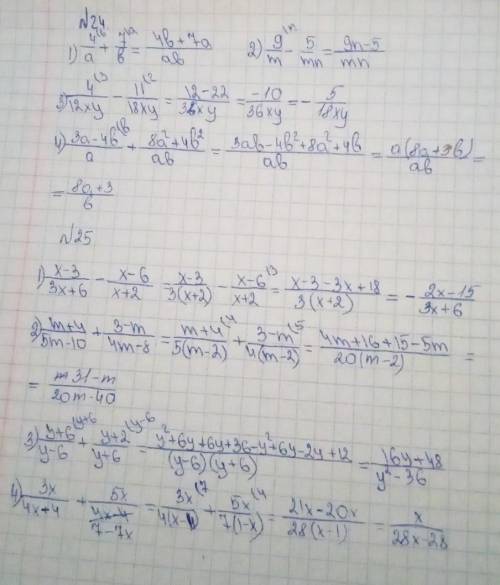 №24
1) 4^(b/a + 7^(a/b = 4b+7a/ab 2) 9^(n/m - 5/mn = 9n-5/mn
3) 4^(3/12xy - 11^(2/18xy = 12-22/36xy = -10/36xy = - 5/18xy
4) 3a-4b^(b/a + 8a²+4b²/ab = 3ab-4b²+8a²+4b/ab = a(8a+3b)/ab =
= 8a+3/b
№25
1) x-3/3x+6 - x-6/x+2 = x-3/3(x+2) - x-6^(3/x+2 = x-3-3x+18/3(x+2) = - 2x-15/3x+6
2) m+4/5m-10 + 3-m/4m-8 = m+4^(4/5(m-2) + 3-m^(5/4(m-2) = 4m+16+15-5m/20(m-2) =
= 31-m/20m-40
3) y+6^(y+6/y-6 + y+2^(y-6/y+6 = y²+6y+6y+36-y²+6y-2y+12/(y-6)(y+6) = 16y+48/y²-36
4) 3x/4x+4 + 5x/7-7x = 3x^(7/4(x-1) + 5x^(4/7(1-x) = 21x-20x/28(x-1) = x/28x-28